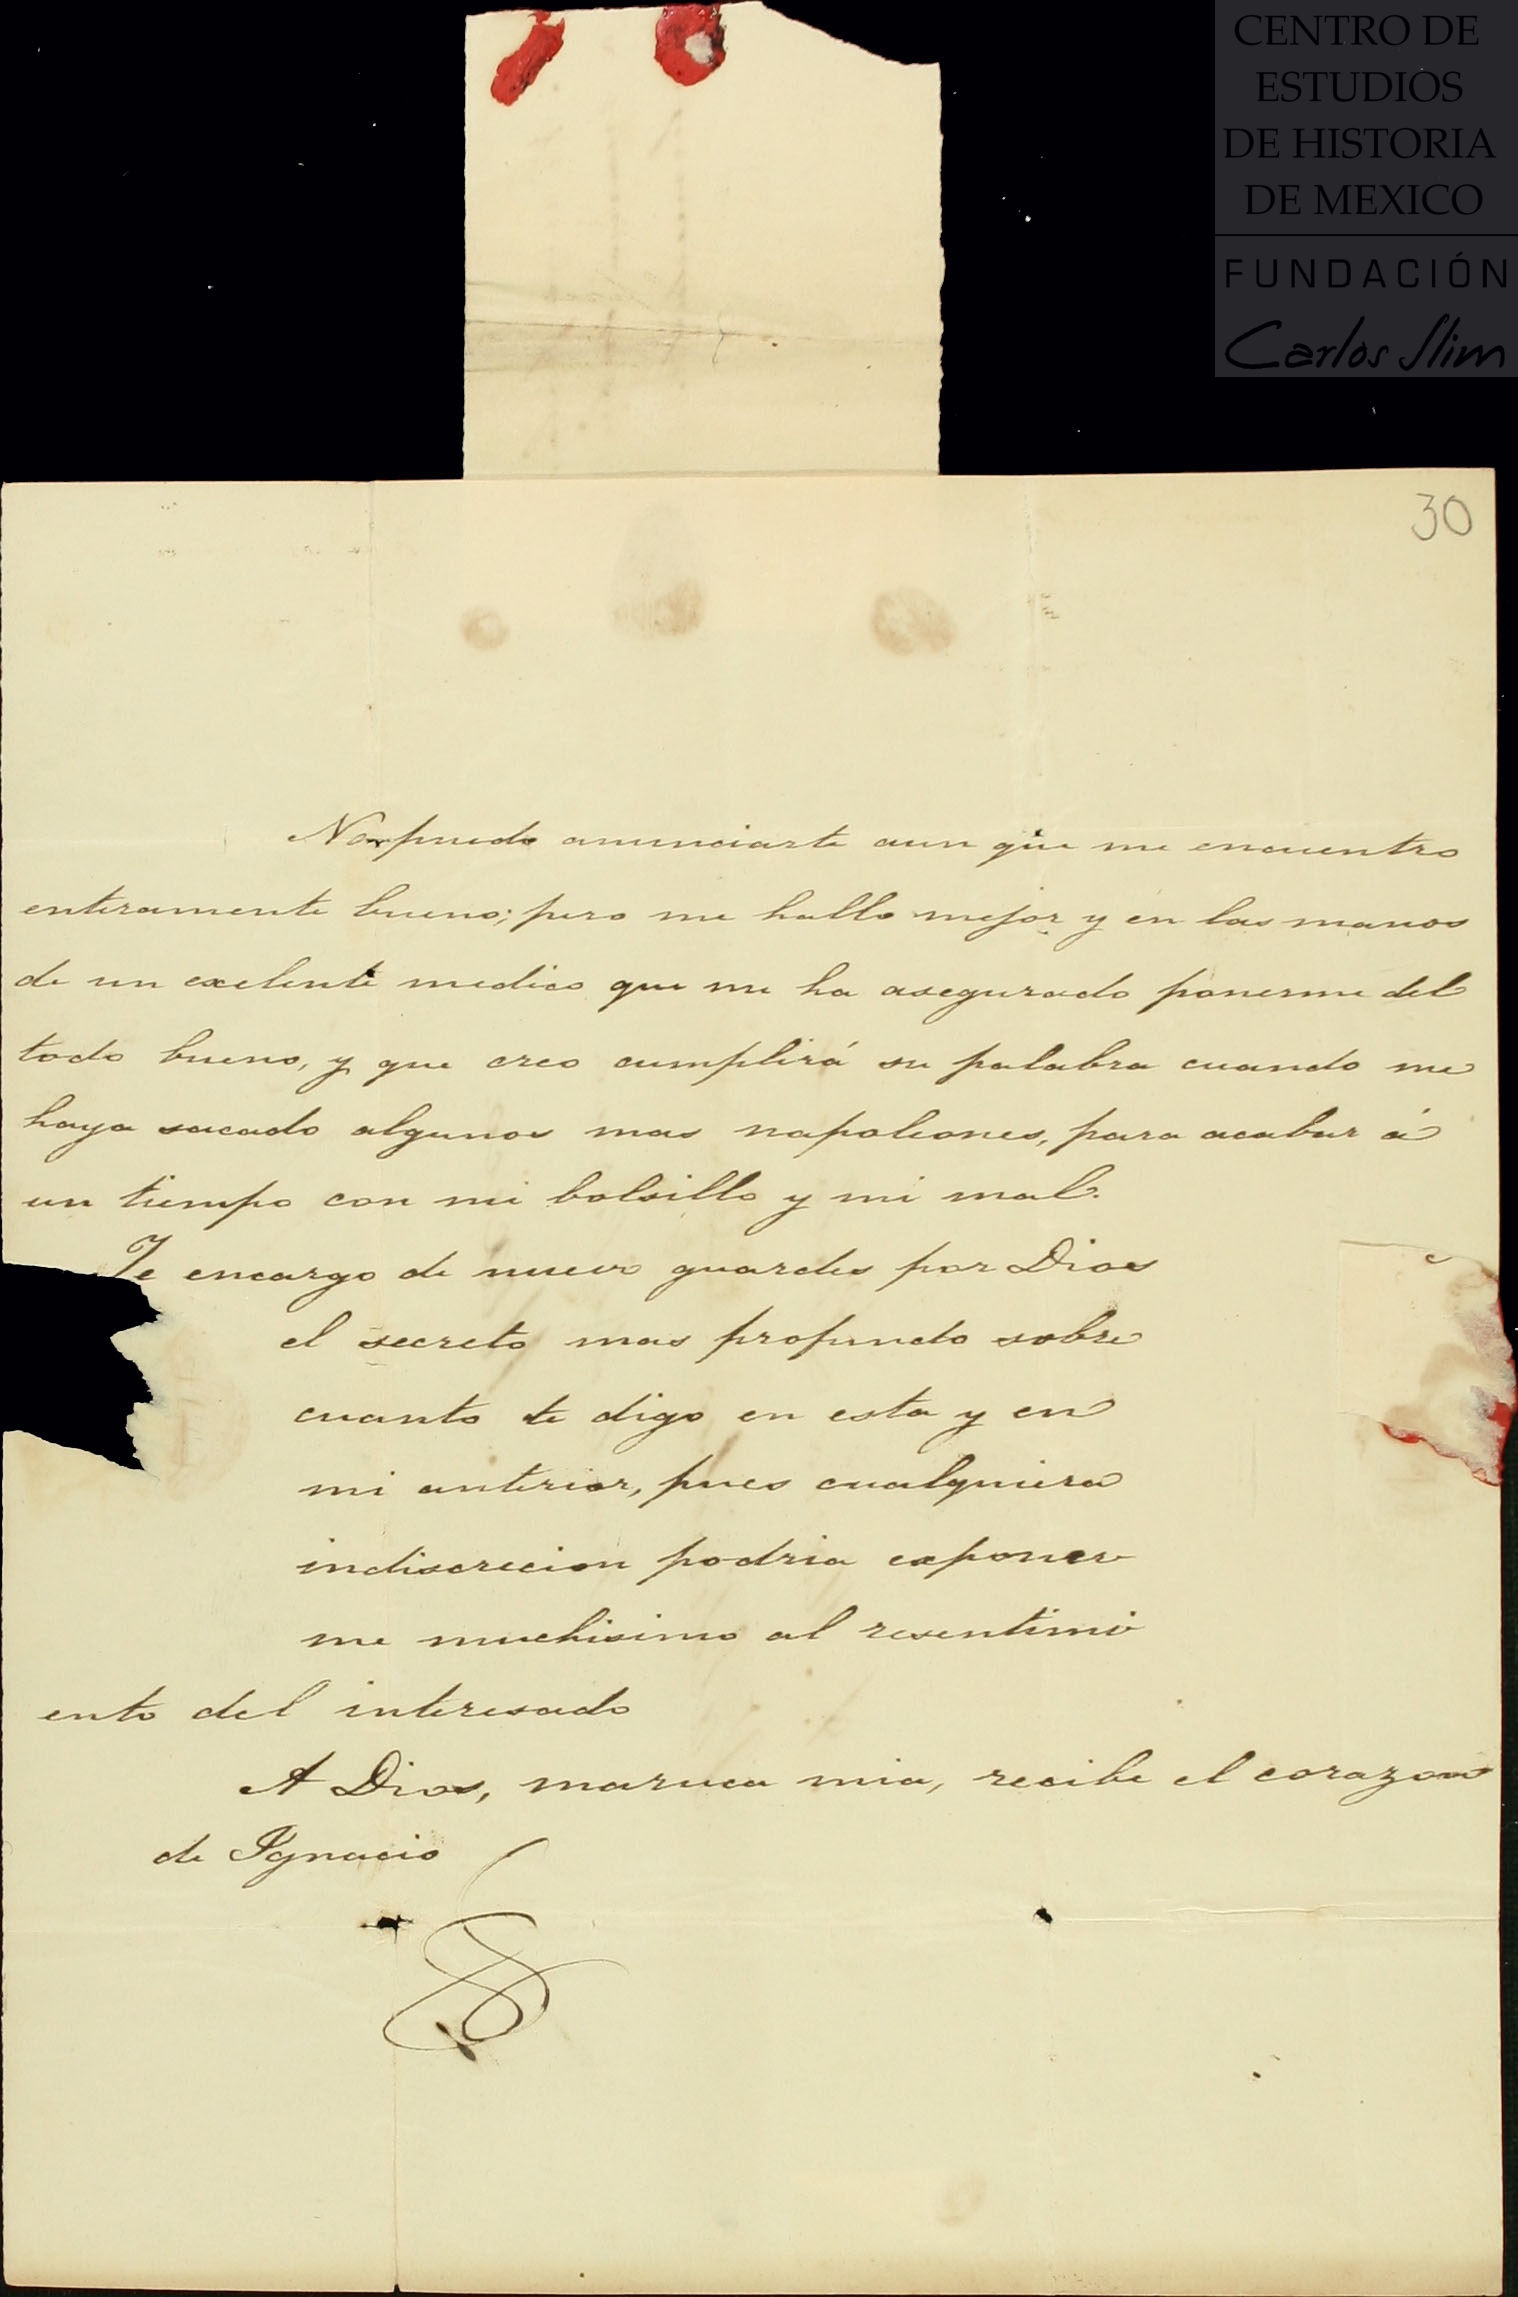 CENTRO DE
ESTUDIOS
DE HISTORIA
DE MEXICO
FUNDACIÓN
Carlos Slim
30
No puedo anunciarte aun que me encuentro
enteramente bueno; pero me hallo mejor y en las manos
de un exelente medico que me ha asegurado ponerme del
todo bueno, y que creo cumplirá su palabra cuando me
haya sacado algunos mas napoleones, para acabar á
un tiempo con mi bolsillo y mi mal.
Te encargo de nuevo guardes por Dios
el secreto mas profundo sobre
cuanto te digo en esta y en
mi anterior, pues cualquiera
indiscrecion podria exponer
me muchisimo al resentimi
ento del interesado
A Dios, maruca mia, recibe el corazon
de Ygnacio